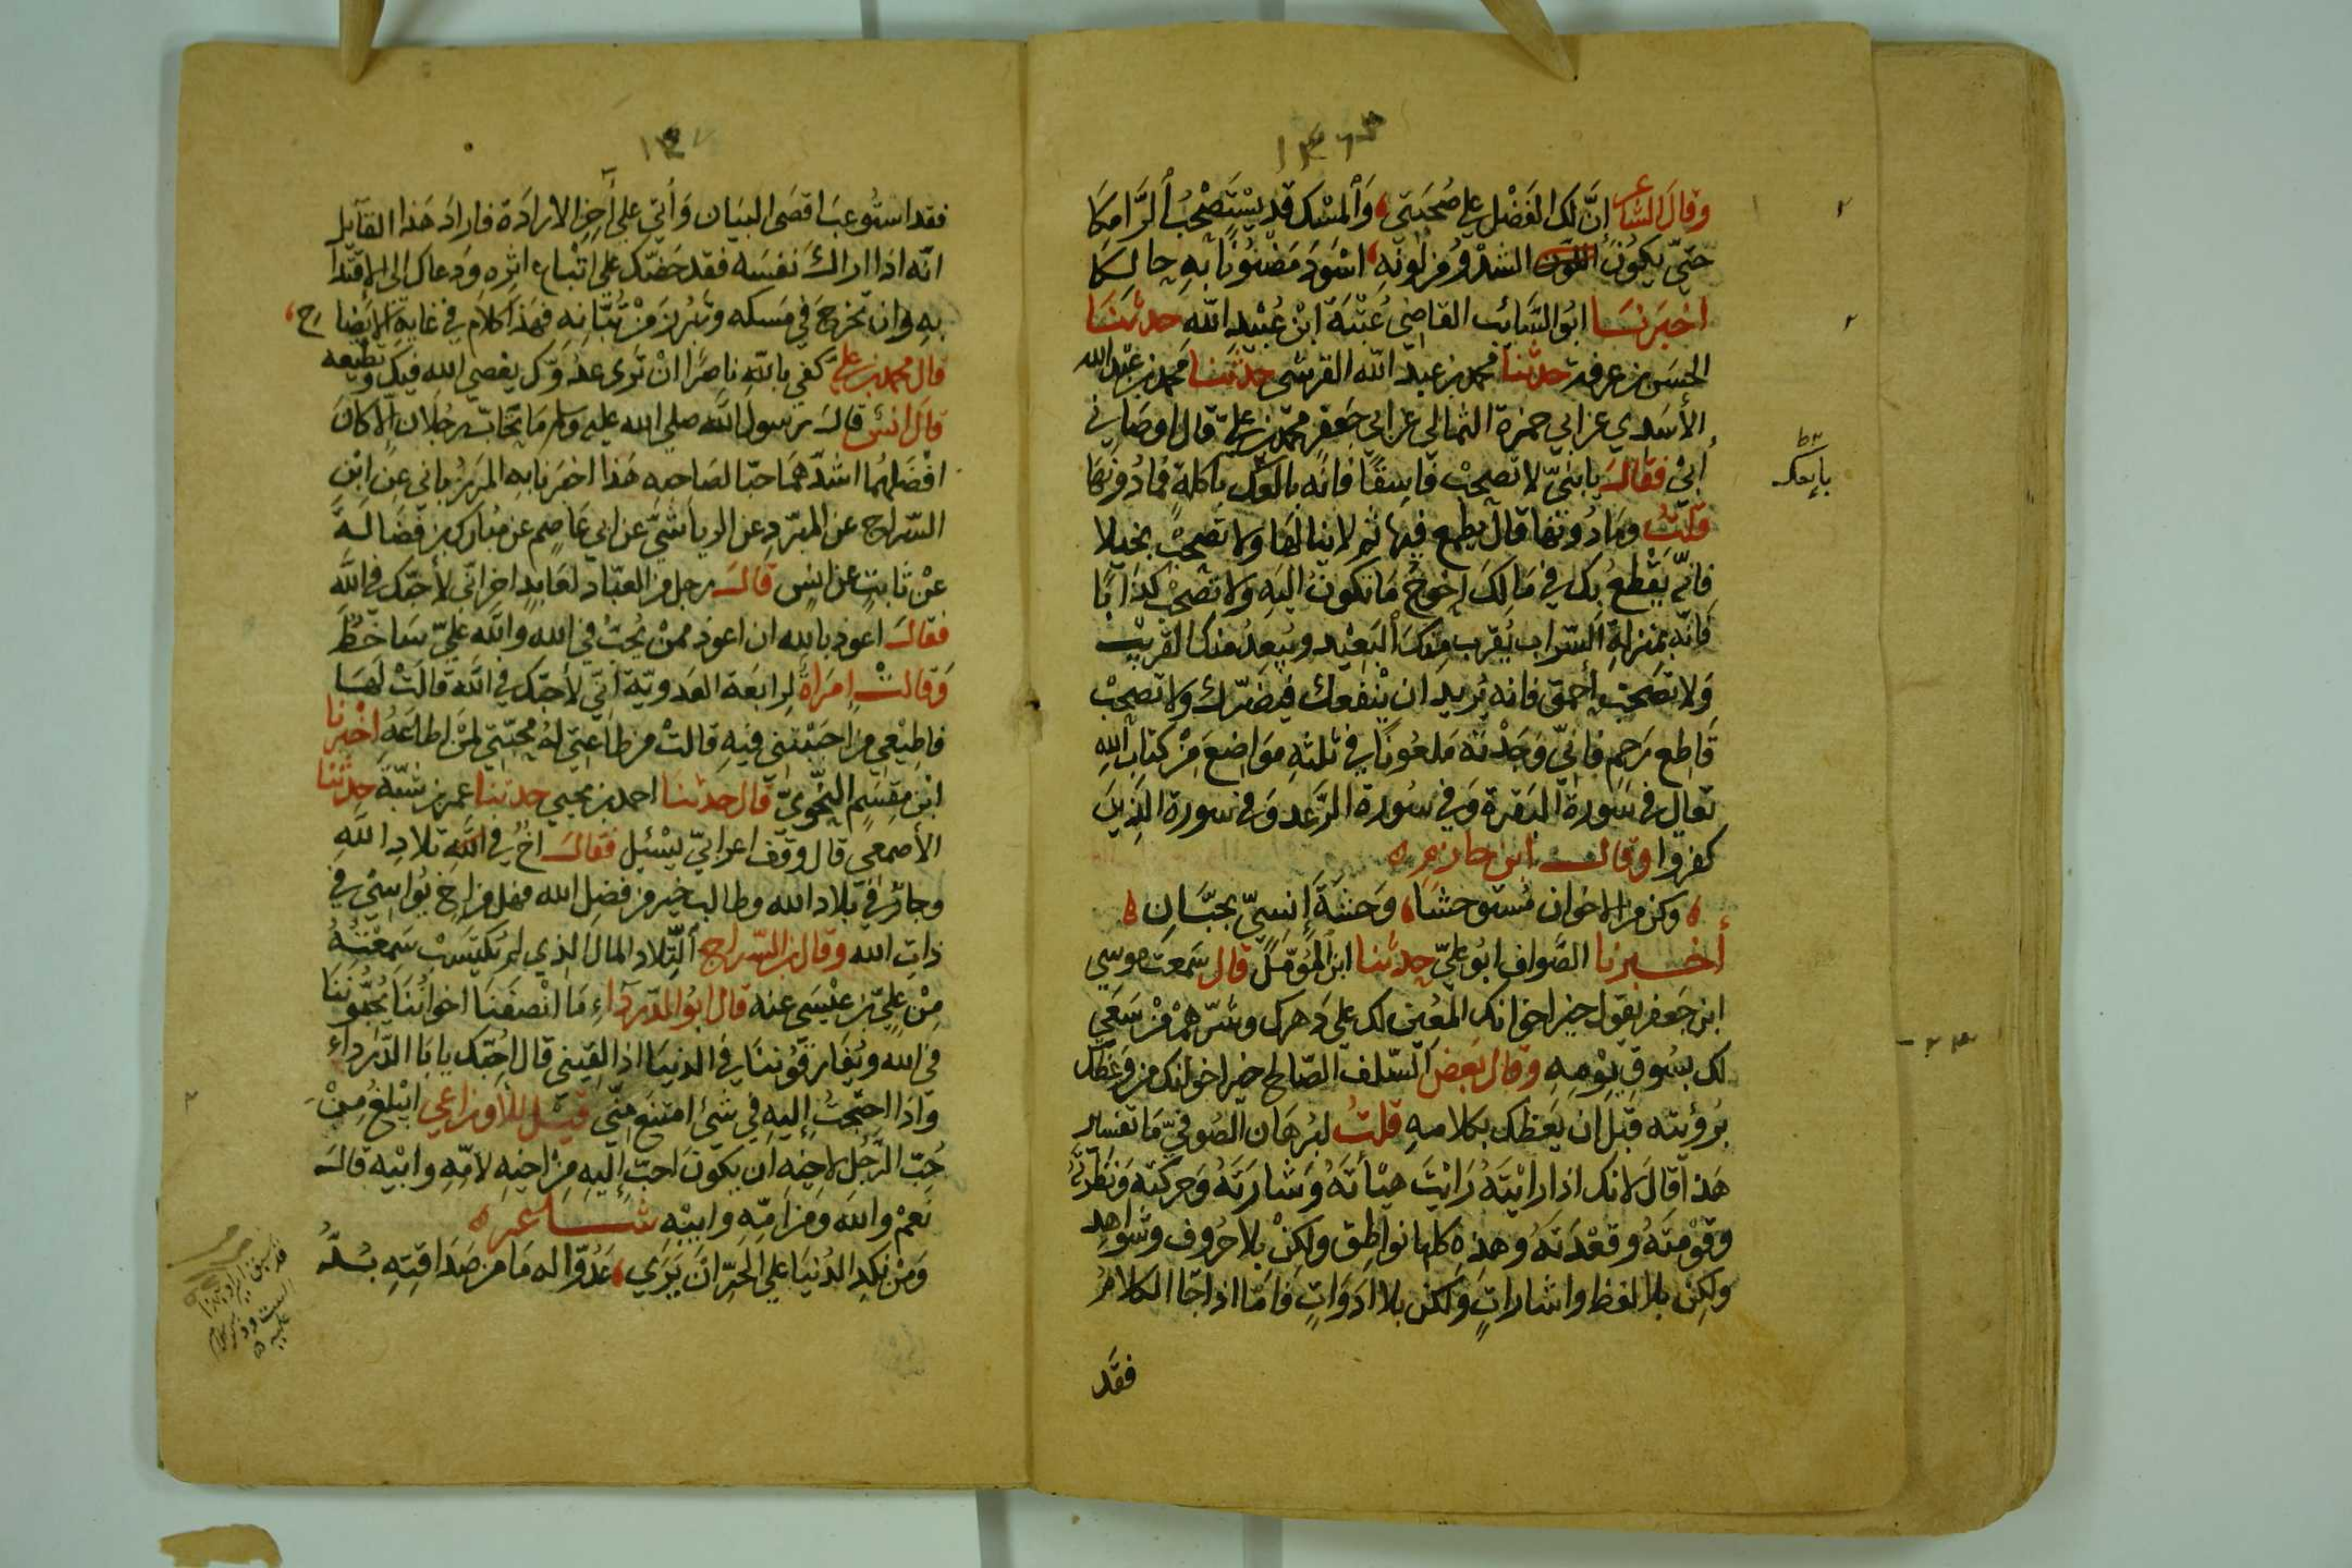 وقال الشاعر إنَّ لك الفضل علي صُحْبَتي وَالمسْك قد يسْتَصْحِبُ الرَّامِكَا
حتّي يكونَ الشدْوُ من لونه اسْوَدَ مَضنُونًا به حالِكَا
اخبَرَنَا ابوُ السَّائب القاضي عُتْبَة ابن عُبَيْد الله حدثنَا
الحسَن بن عرفة حدثنا محمد بن عبد الله القرشي حدثنا محمد بن عبد الله
الأسَدي عن ابي حمزة الثمالي عن ابي جعفر محمد بن علي قال اوصَاني
أبي فقالَ يا بنيّ لا تصحبْ فاسِقًا فانّه بائعك باكلةٍ فمادُونها
قلتُ ومادُونها قال يطمع فيها ثم لا ينالها ولا تصحبْ بخيلا
فانّه يقْطعُ بك في مَالِكَ احْوجَ مَا تكون اليه ولا تصحبْ كذّابًا
فانّه بمنزلةِ السّراب يُقرب منكَ البَعيْد ويُبعِدُ منك القريبْ
وَلا تصحبْ احمق فانه يُريد ان ينْفعك فيَضرّك ولا تصحبْ
قاطع رَحِم فانّي وَجَدْته مَلعُونًا في ثلثه موَاضعَ مِنْ كتاب الله
تعالي في سورة البَقرة وَفي سُورة الرّعد وَفي سورة الذين
كفروا وقالـ ابن حازم
وكن من الاخوان مُستوحشًا وَحشةَ إنسيّ بجبَّانِ
أخـبرنا الصَّواف ابوُ عليّ حدثنا ابن المؤمّل قال سَمعت موسي
ابن جَعفر يقول خير اخوانك المعُين لك علي دَهرك وشرّهمْ منْ سَعَي
لك بسُوق يوْمِهِ وقال بَعض السّلف الصّالح خير اخوانك من وَعظك
برُؤيته قبل ان يَعظك بكلامهِ قلتُ لبُرهَان الصُوفيّ مَا تفسير
هَذا قال لانك اذا رايْتَهُ رَايْتَ هيْأتَهُ وَشارَتَهُ وَحركتَه وَنظرتَهُ
وقوْمَتَهُ وقعْدَتَهُ وهَذِه كلها نواطق ولكنْ بلا حرُوف وشواهِد
ولكنْ بلا لفظ واشاراتٍ ولكن بلا ادَوَاتٍ فامّا اذا جَا الكلامُ
فقَد
بائعك
فقد استُوعبَ اقصَى البَيان وَأتي علي آخر الارادَة فارادَ هَذا القآيل
انّه اذا اراك نفسَه فقد حَضّك علي اتبْاع اثرِه وَدعاك الي الاقتدا
بهِ وان تخرجَ في مَسكه وتبرُز منْ ثيَابه فهَذا كلام في غاية الايضاح
قال محمد بن علي كفي بالله ناصرًا انْ تَرَى عدُوّك يعْصي الله فيك وتُطيعه
قال انسٌ قالـ رسولُ الله صلي الله عليه وسلم مَا تحابّ رجُلان الّا كان
افْضَلهُما اشدّهمَا حبّا لصَاحبه هَذا اخبَرنا به المَرزُباني عن ابْن
السّراج عن المبَرّد عن الرياشيّ عن ابي عَاصم عن مُبارك بن فَضَالةَ
عنْ ثَابتٍ عن انسٍ قالـ رجل من العبّاد لعَابدٍ اخر انّي لأحبّك في الله
فقالـ اعوذ بالله ان اعوذ ممنْ يُحبّ في الله والله عليّ سَاخطٌ
وَقالتْ امرَاةٌ لرابعَة العَدويّة انّي لأحبّك في الله قالتْ لهَا
فاطِيْعي منْ احبَبْتِني فيهِ قالتْ من طاعتي لهُ مَحبّتي لمَنْ اطاعَهُ اخبرنا
ابن مِقسَمٍ النحّويّ قال حدثنا احمد بن يحيي حدثنا عمر بن شَبّة حدثنا
الأصمعي قال وقف اعرابيّ يسْئل فقالـ اخٌ في الله بلادِ الله
وجارٌ في بلاد الله وطالب خير من فضل الله فهل من اخ يُواسيْ في
ذات الله وقال ابن السّراج التّلاد المال الذي لم تكتَسبْ سَمعْتهُ
مِنْ عليّ بن عيْسَى عنه قال ابوُ الدّرداء مَا انْصفَنَا اخوَاننَا يُحبُّونَنَا
في الله ويُفَارقُوُنَنا في الدنيا اذا لقيني قال احُبّك يا با الدّرداء
وَاذا احتجتُ إليهِ في شيء امتنعَ منّي قيـل للأوزاعي ايَبلغ مِنْ
حُبّ الرّجُل لاخيه ان يكونَ احبّ اليه مِنْ اخيه لامّه وابيْه قالـ
نَعمْ واللهِ ومِن امّهِ وابيْه شـاعر
وَمِنْ نكد الدُنيا علي الحرِّ ان يَرَي عَدُوّا له مَا من صَدَاقتِهِ بُدُّ